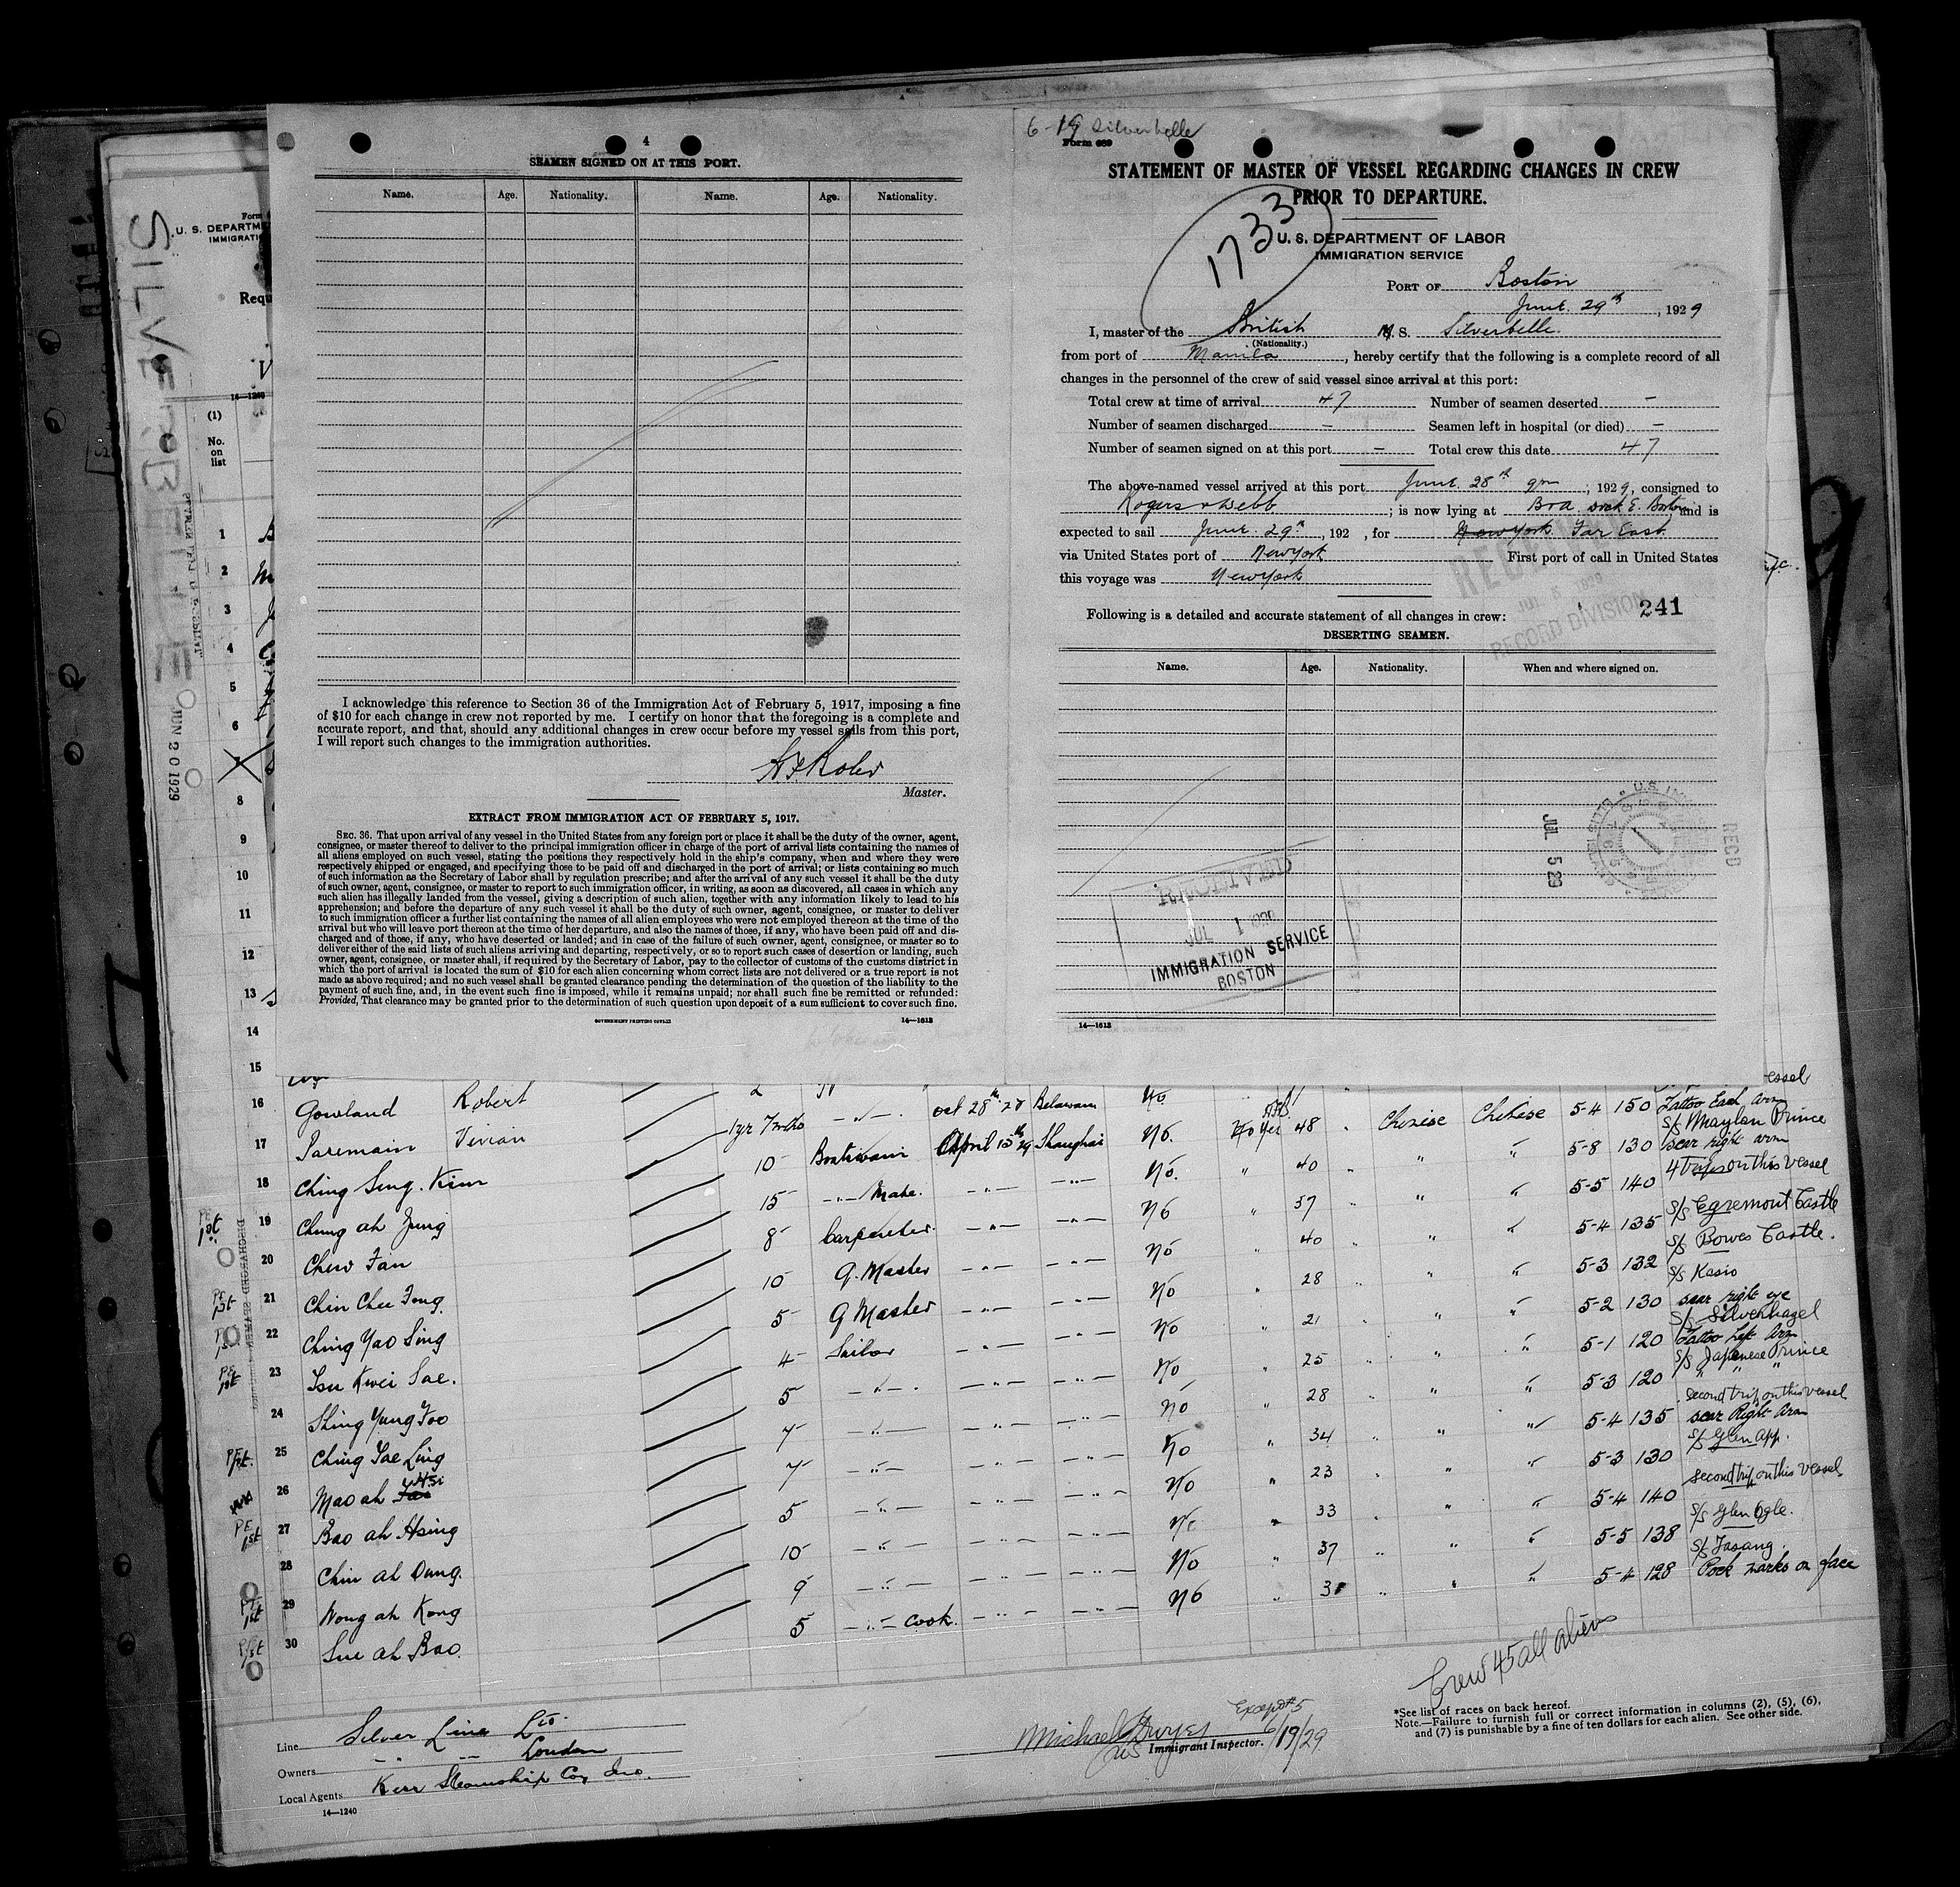 4
SEAMEN SIGNED ON AT THIS PORT.
Name. Age. Nationality. Name. Age. Nationality.
I acknowledge this reference to Section 36 of the Immigration Act of February 5, 1917, imposing a fine
of $10 for each change in crew not reported by me. I certify on honor that the foregoing is a complete and
accurate report, and that, should any additional changes in crew occur before my vessel sails from this port,
I will report such changes to the immigration authorities.
Master.
EXTRACT FROM IMMIGRATION ACT OF FEBRUARY 5, 1917.
SEC. 36. That upon arrival of any vessel in the United States from any foreign port or place it shall be the duty of the owner, agent,
consignee, or master thereof to deliver to the principal immigration officer in charge of the port of arrival lists containing the names of
all aliens employed on such vessel, stating the positions they respectively hold in the ship's company, when and where they were
respectively shipped or engaged, and specifying those to be paid off and discharged in the port of arrival; or lists containing so much
of such information as the Secretary of Labor shall by regulation prescribe; and after the arrival of any such vessel it shall be the duty
of such owner, agent, consignee, or master to report to such immigration officer, in writing, as soon as discovered, all cases in which any
such alien has illegally landed from the vessel, giving a description of such alien, together with any information likely to lead to his
apprehension; and before the departure of any such vessel it shall be the duty of such owner, agent, consignee, or master to deliver
to such immigration officer a further list containing the names of all alien employees who were not employed thereon at the time of the
arrival but who will leave port thereon at the time of her departure, and also the names of those, if any, who have been paid off and dis-
charged and of those, if any, who have deserted or landed; and in case of the failure of such owner, agent, consignee, or master so to
deliver either of the said lists of such aliens arriving and departing, respectively, or so to report such cases of desertion or landing, such
owner, agent, consignee, or master shall, if required by the Secretary of Labor, pay to the collector of customs of the customs district in
which the port of arrival is located the sum of $10 for each alien concerning whom correct lists are not delivered or a true report is not
made as above required; and no such vessel shall be granted clearance pending the determination of the question of the liability to the
payment of such fine, and, in the event such fine is imposed, while it remains unpaid; nor shall such fine be remitted or refunded:
Provided, That clearance may be granted prior to the determination of such question upon deposit of a sum sufficient to cover such fine.
GOVERNMENT PRINTING OFFICE 14—1613
6-19 Silverbelle
Form 689
STATEMENT OF MASTER OF VESSEL REGARDING CHANGES IN CREW
PRIOR TO DEPARTURE.
1733
U. S. DEPARTMENT OF LABOR
IMMIGRATION SERVICE
PORT OF Boston
June 29th, 1929
I, master of the British M.S. Silverbelle
(Nationality.)
from port of Manila, hereby certify that the following is a complete record of all
changes in the personnel of the crew of said vessel since arrival at this port:
Total crew at time of arrival 47 Number of seamen deserted -
Number of seamen discharged - Seamen left in hospital (or died) -
Number of seamen signed on at this port - Total crew this date 47
The above-named vessel arrived at this port June 28th 9pm, 1929, consigned to
Rogers & Webb; is now lying at B&A dock E. Boston, and is
expected to sail June 29th, 192 , for New York Far East
via United States port of New York First port of call in United States
this voyage was New York
Following is a detailed and accurate statement of all changes in crew: 241
DESERTING SEAMEN.
Name. Age. Nationality. When and where signed on.
RECORD DIVISION
JUL 5 29
RECD
RECEIVED
JUL 1 1929
IMMIGRATION SERVICE
BOSTON
14—1613
SILVERBELLE
JUN 20 1929
Form
U. S. DEPARTME
IMMIGRATIO
Requ
14—1240
(1)
No.
on
list
1
2
3
4
5
6
7
8
9
10
11
12
13
14
15
DISCHARGED SEAMEN
16 Gowland Robert
17 Paremain Vivian 1yr 7mths Oct 28th 27 Belawan No
18 Ching Sing Kim 10 Boatswain April 15th 29 Shanghai No. Yes 48 Chinese Chinese 5-4 150 Tattoo Each Arm S/S Malayan Prince
19 Chung ah Jung 15 Mate No. 40 5-8 130 scar right arm 4 Trips on this vessel
20 Chew Fan 8 Carpenter No 37 5-5 140 S/S Egremont Castle
21 Chin Chee Fong 10 Q. Master No 40 5-4 135 S/S Bowes Castle.
22 Ching Yao Sing 5 Q Master No 28 5-3 132 S/S Kasio
23 Tsu Kwei Sae. 4 Sailor No 21 5-2 130 scar right eye S/S Silverhazel
24 Shing Yung Foo 5 No 25 5-1 120 Tattoo Left Arm S/S Japanese Prince
25 Ching Sae Ling 7 No 28 5-3 120 " "
26 Mao ah Hsi 7 No 34 5-4 135 second trip on this vessel scar Right Arm
27 Bao ah Hsing 5 No 23 5-3 130 S/S Glen app.
28 Chin ah Dung. 10 No 33 5-4 140 second trip on this vessel
29 Wong ah Kong 9 No 37 5-5 138 S/S Glen Ogle.
30 Sue ah Bao. 5 Cook. No 5-4 128 S/S Fasang. Pock marks on face
Crew 45 all aliens
Except #5
Line Silver Line Ltd.
Owners London
Local Agents Kerr Steamship Co, Inc.
14—1240
Michael Dwyer
Immigrant Inspector. 6/19/29
*See list of races on back hereof.
Note.—Failure to furnish full or correct information in columns (2), (5), (6),
and (7) is punishable by a fine of ten dollars for each alien. See other side.